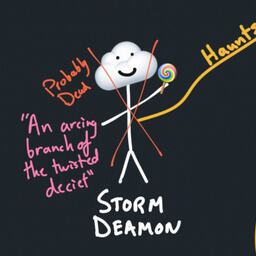 Probably
Dead
Haunts
"An arcing
branch of
the twisted
deciet"
STORM
DEAMON